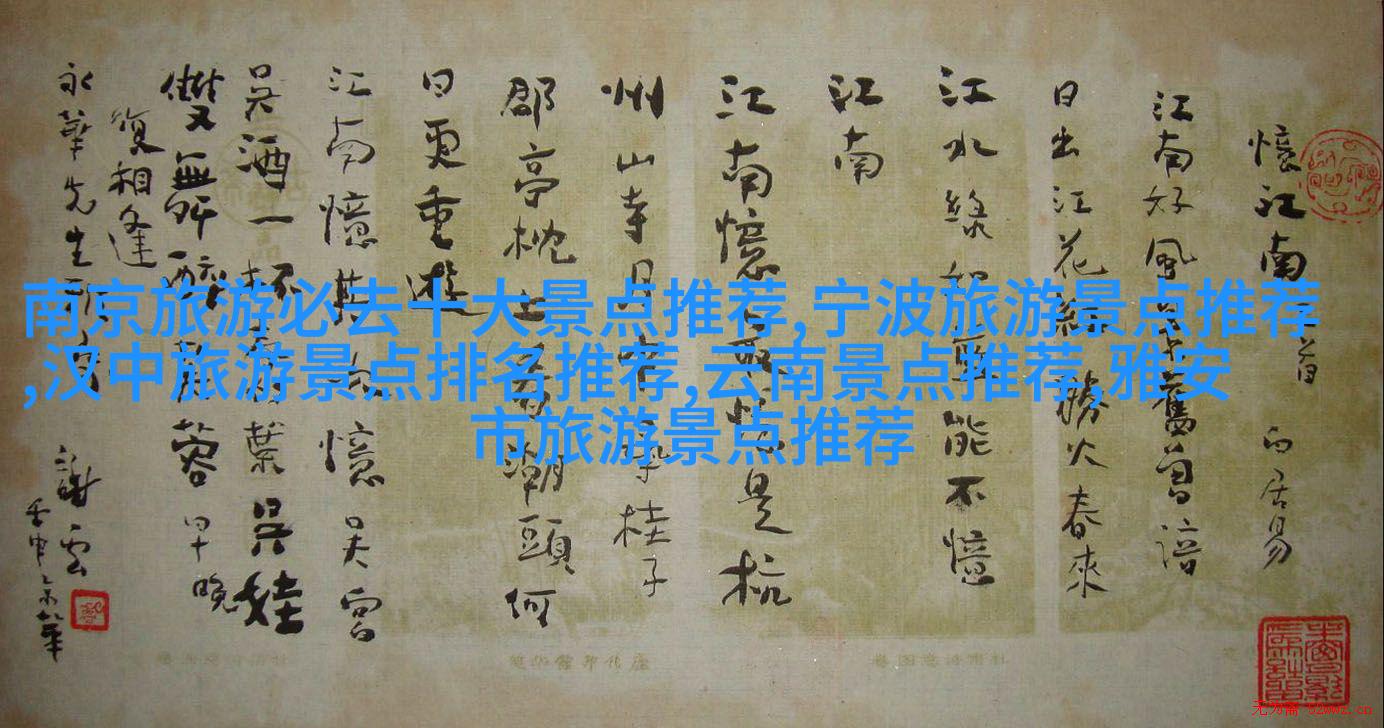 憶江南三首 白居易
江南好風景舊曾諳
日出江花紅勝火春來
江水綠如藍能不憶
江南
江南憶最憶是杭
州山寺月中尋桂子
郡亭枕上看潮頭何
日更重遊
江南憶其次憶吳宮
吳酒一杯春竹葉吳娃
雙舞醉芙蓉早晚
復相逢
永華先生
謝雲
壬申
南京旅游必去十大景点推荐,宁波旅游景点推荐
,汉中旅游景点排名推荐,云南景点推荐,雅安
市旅游景点推荐
无为斋 52wwz.cn